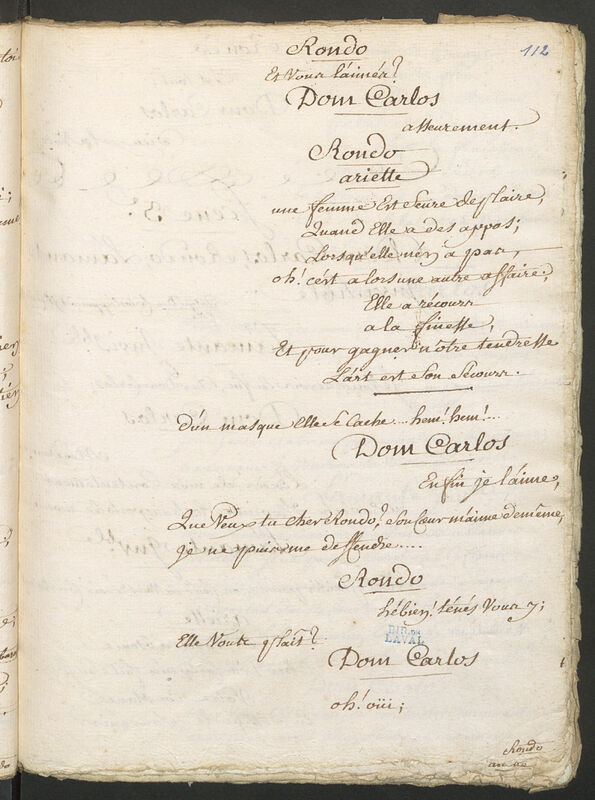 112
Rondo
Et Vous L'aimés?
Dom Carlos
asseurement.
Rondo
ariette
une femme Est Seure de plaire,
Quand Elle a des appas;
Lorsqu'elle n'en a pas,
oh! c'est alors une autre affaire;
Elle a récours
a la finesse,
Et pour gagner nôtre tendresse
L'art est Son Secours.
D'un masque Elle Se Cache... hem! hem!...
Dom Carlos
Enfin je L'aime,
Que Veux tu Cher Rondo? Son Cœur m'aime de même,
je ne puis me deffendre....
Rondo
hébien! ténés Vous y;
Elle Vous plaît?
BIB. DE
LAVAL
Dom Carlos
oh! oüi;
Rondo